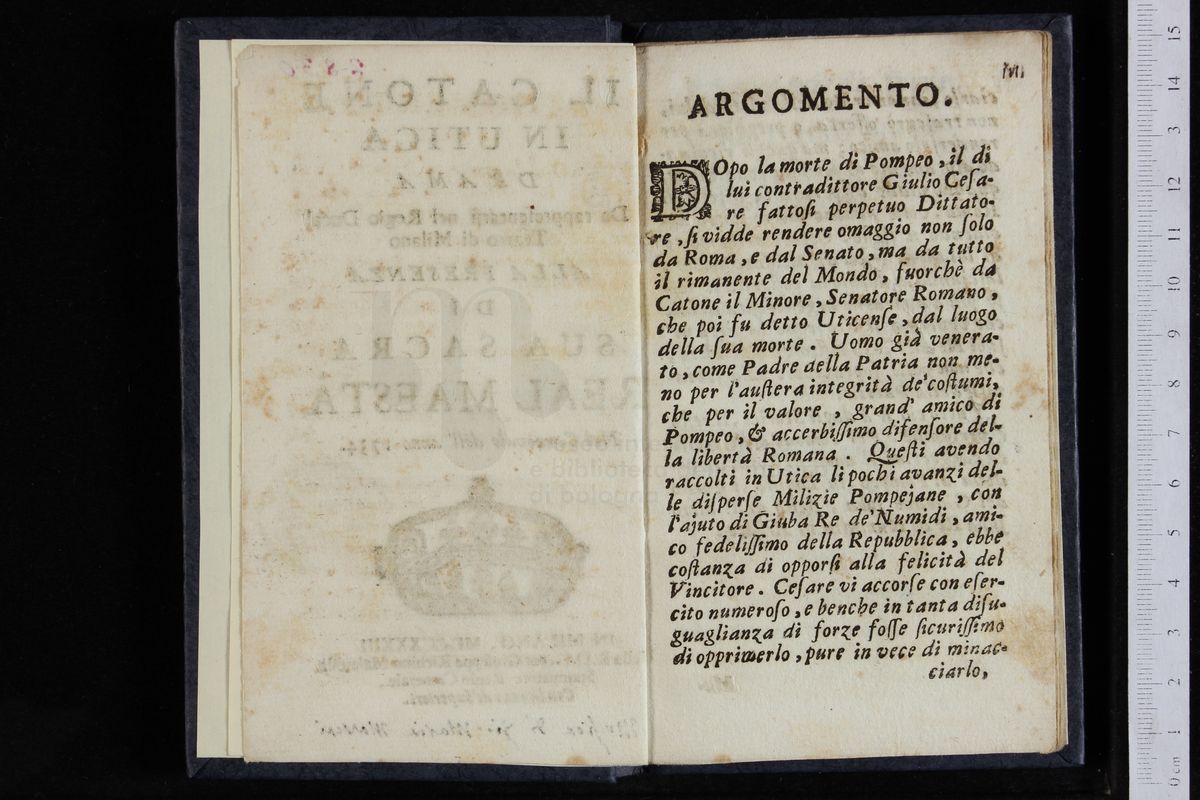 ARGOMENTO.
DOpo la morte di Pompeo, il di
lui contradittore Giulio Ceſa-
re fattoſi perpetuo Dittato-
re, ſi vidde rendere omaggio non ſolo
da Roma, e dal Senato, ma da tutto
il rimanente del Mondo, fuorchè da
Catone il Minore, Senatore Romano,
che poi fu detto Uticenſe, dal luogo
della ſua morte. Uomo già venera-
to, come Padre della Patria non me-
no per l'auſtera integrità de'coſtumi,
che per il valore, grand' amico di
Pompeo, & accerbiſſimo difenſore del-
la libertà Romana. Queſti avendo
raccolti in Utica li pochi avanzi del-
le diſperſe Milizie Pompejane, con
l'ajuto di Giuba Re de'Numidi, ami-
co fedeliſſimo della Repubblica, ebbe
coſtanza di opporſi alla felicità del
Vincitore. Ceſare vi accorſe con eſer-
cito numeroſo, e benche in tanta diſu-
guaglianza di forze foſſe ſicuriſſimo
di opprimerlo, pure in vece di minac-
ciarlo,
IL CATONE
IN UTICA
DRAMA
Da rappreſentarſi nel Regio Ducal
Teatro di Milano
ALLA PRESENZA
DI
SUA SACRA
REAL MAESTA
e biblioteca
di bologna
15
14
13
12
11
10
9
8
7
6
5
4
3
2
1
0 cm